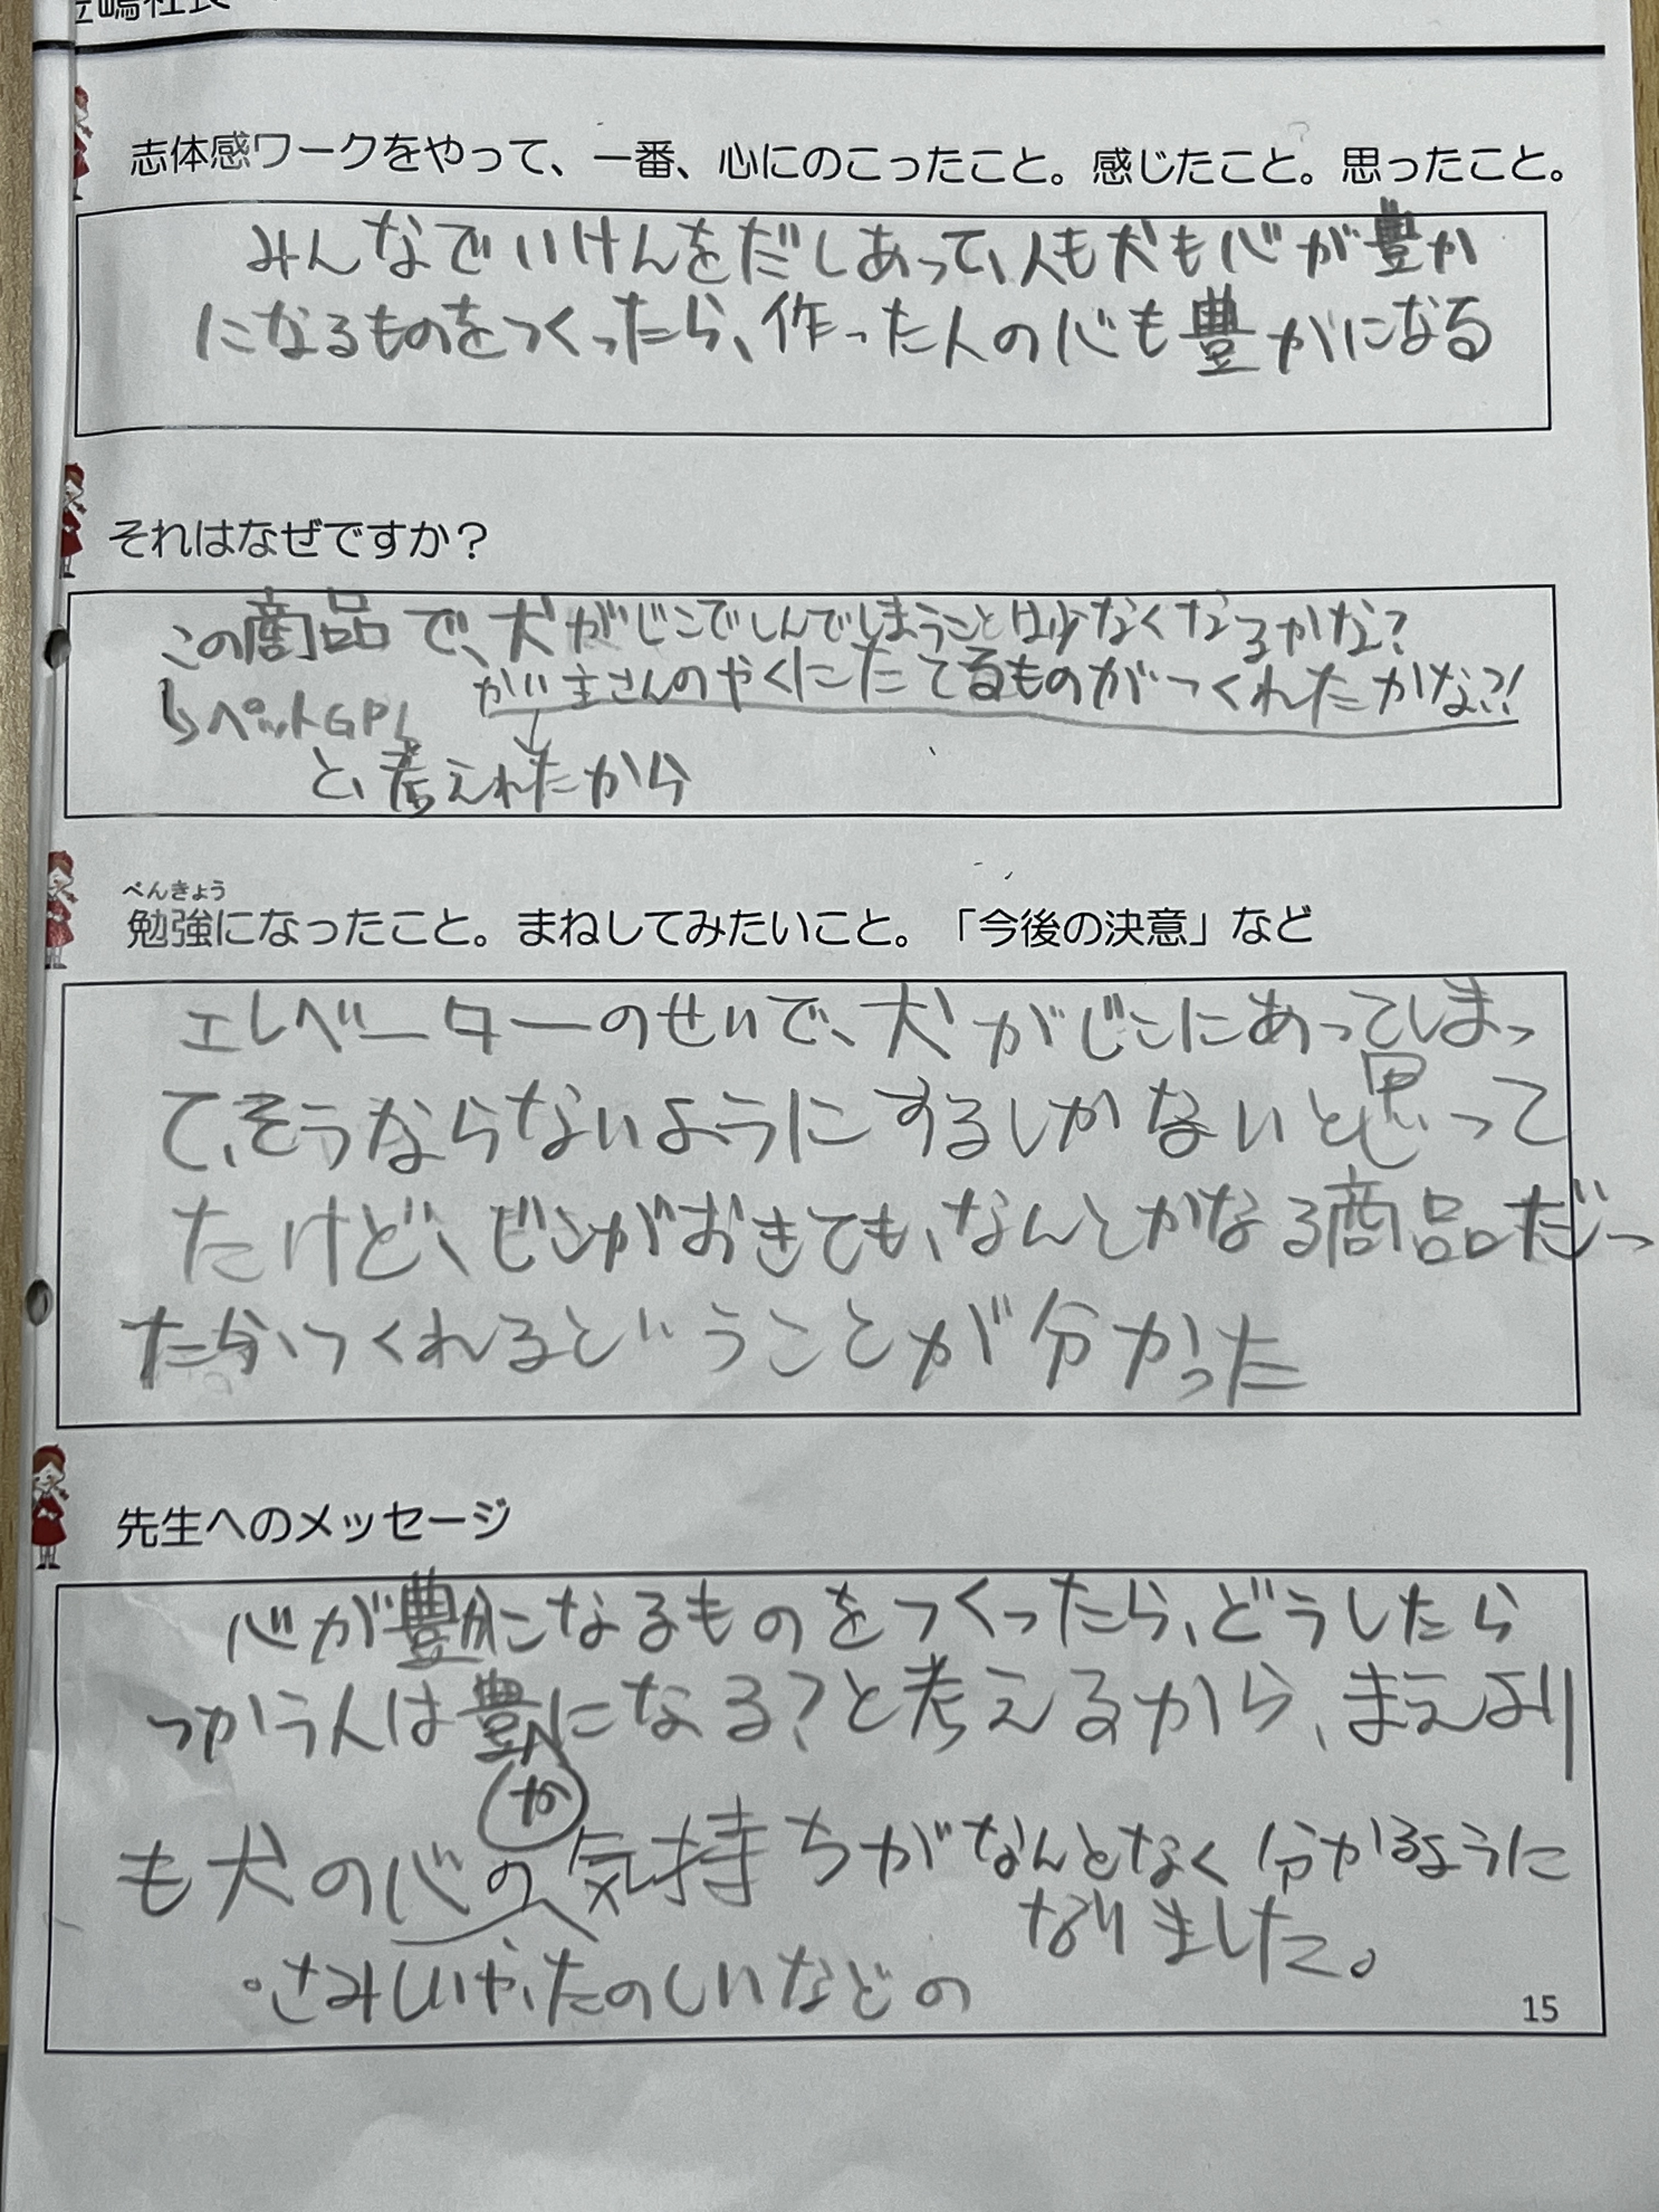 嶋社長
志体感ワークをやって、一番、心にのこったこと。感じたこと。思ったこと。
みんなでいけんをだしあって、人も犬も心が豊か
になるものをつくったら、作った人の心も豊かになる
それはなぜですか？
この商品で、犬がじこでしんでしまうことは少なくなるかな?
かい主さんのやくにたてるものがつくれたかな?!
↳ペットGPS
と、考えれたから
べんきょう
勉強になったこと。まねしてみたいこと。「今後の決意」など
エレベーターのせいで、犬がじこにあってしまっ
て、そうならないようにするしかないと思って
たけど、じこがおきても、なんとかなる商品だっ
たらつくれるということが分かった
先生へのメッセージ
心が豊かになるものをつくったら、どうしたら
つかう人は豊かになる?と考えるから、まえより
も犬の心の気持ちがなんとなく分かるように
なりました。
・さみしいや、たのしいなどの
15